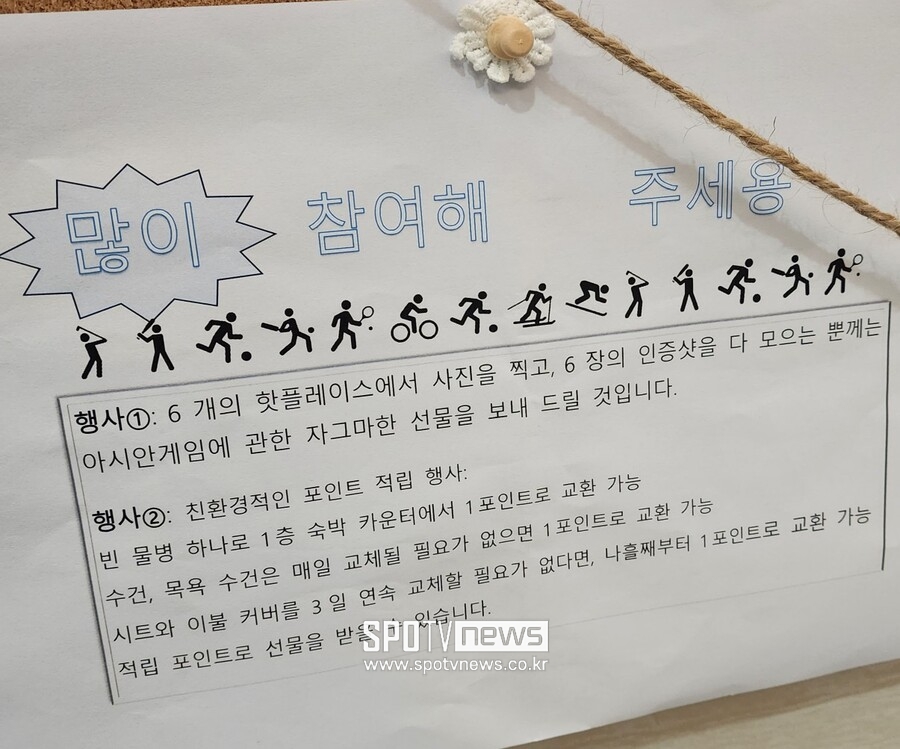 많이 참여해 주세용
행사①: 6 개의 핫플레이스에서 사진을 찍고, 6 장의 인증샷을 다 모으는 뿐께는
아시안게임에 관한 자그마한 선물을 보내 드릴 것입니다.
행사②: 친환경적인 포인트 적립 행사:
빈 물병 하나로 1층 숙박 카운터에서 1포인트로 교환 가능
수건, 목욕 수건은 매일 교체될 필요가 없으면 1포인트로 교환 가능
시트와 이불 커버를 3일 연속 교체할 필요가 없다면, 나흘째부터 1포인트로 교환 가능
적립 포인트로 선물을 받을 수 있습니다.
SPOTV news
www.spotvnews.co.kr